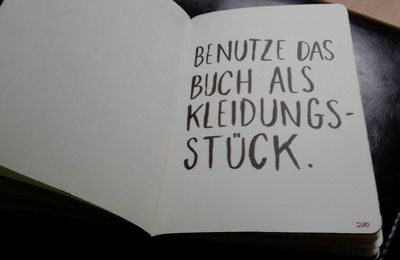 BENUTZE DAS
BUCH ALS
KLEIDUNGS-
STÜCK.